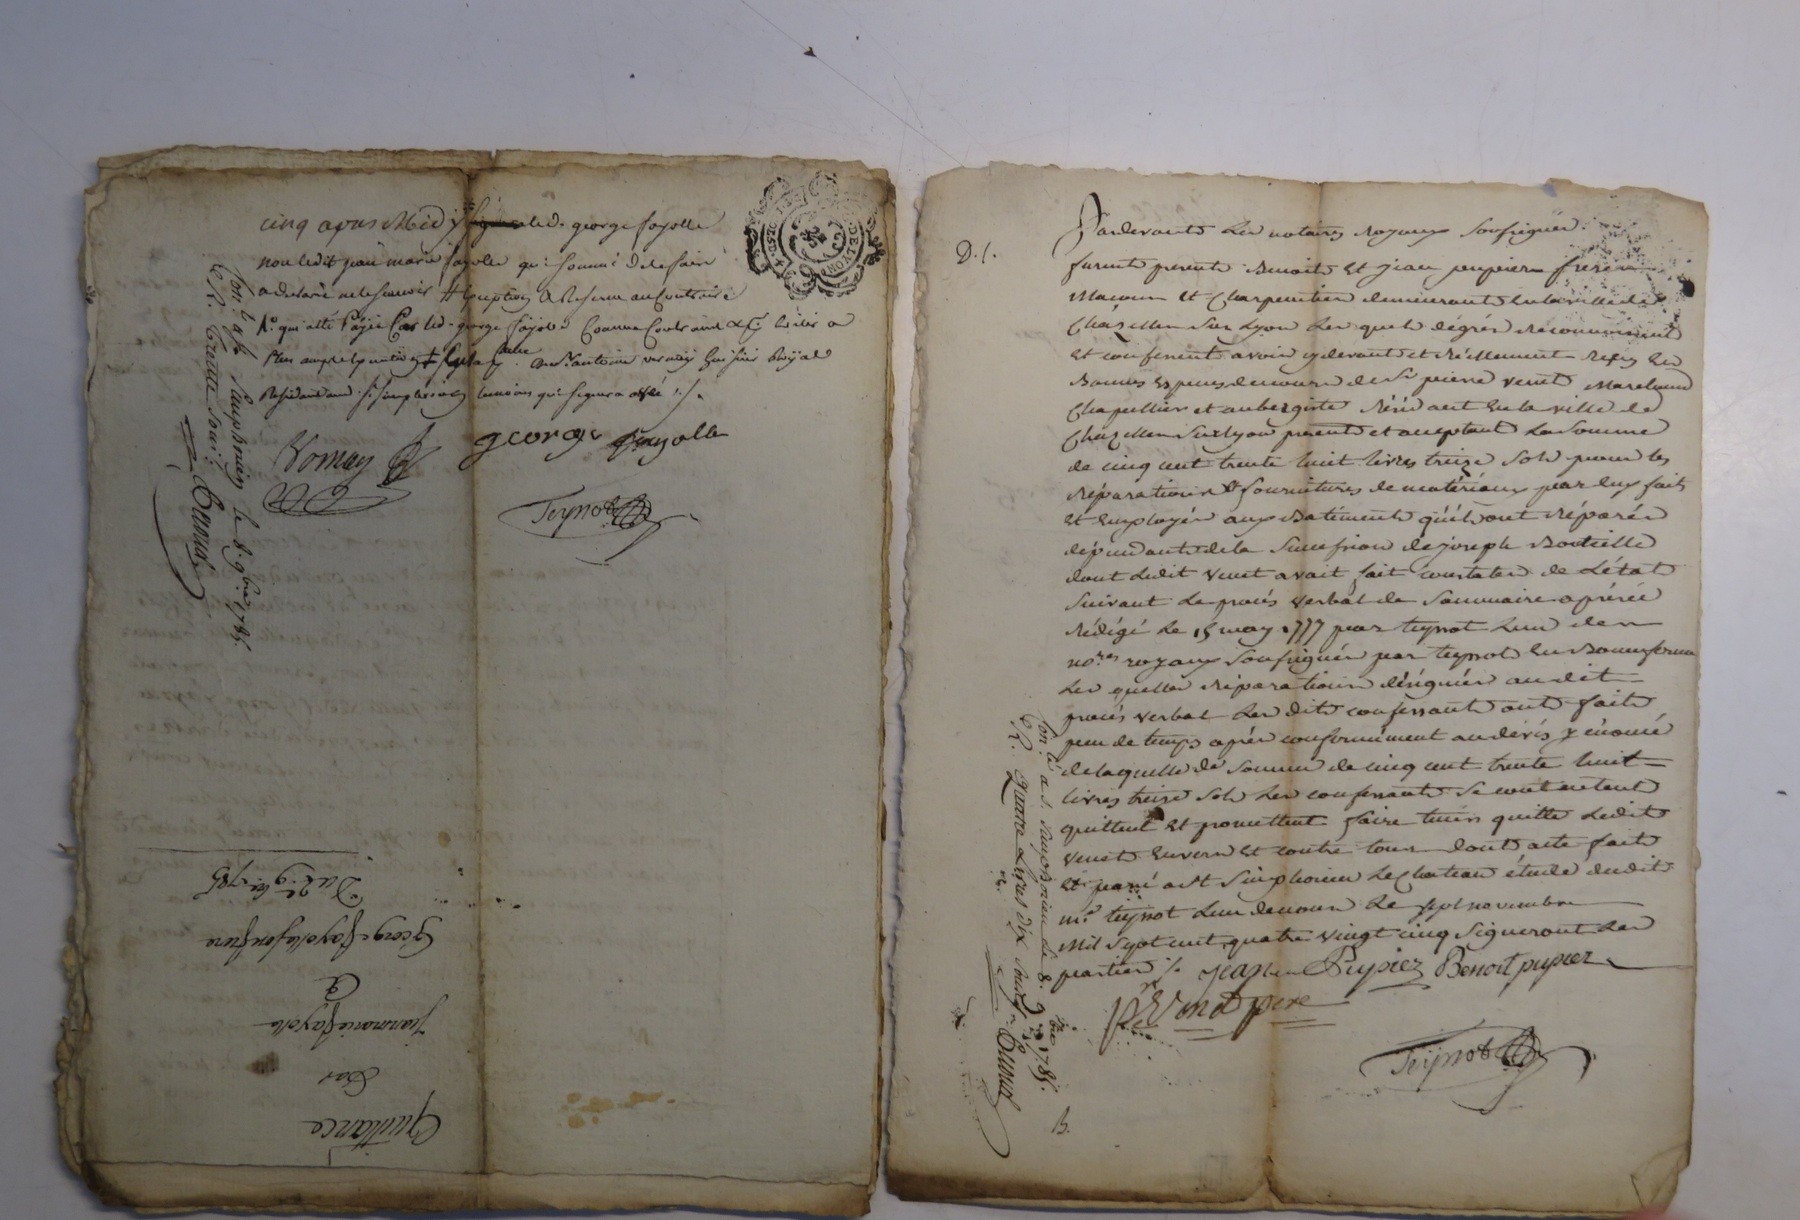 cinq apres Midy led. george fayolle
non ledit jean marie fayolle qui sommé de le faire
a declaré ne le scavoir
qui a été Payée Par led. george fayolle Comme
plus ample
george fayolle
Teÿnot
Con.lé a St Simphorien le 8. 9bre 1785.
Quittance
Par
Jean marie fayolle
A
George fayolle son frere
Du 2e. 9bre 1785
D. 1.
Pardevant les notaires royaux soussignés
furent presents Benoit et jean pupier freres
Macons et Charpentier demeurants en la ville de
Chazelles sur Lyon lesquels de grés reconnoissent
et confessent avoir cydevant et réellement reçu en
Bonnes Especes de cours de Sr pierre venet Marchand
Chapellier et aubergiste résidant en la ville de
Chazelles sur lyon present et acceptant la somme
de cinq cent trente huit livres treize sols pour les
réparations et fournitures de materiaux par eux faits
et employés aux Batiments qu'ils ont réparés
dépendants de la succession de joseph Bouteille
dont ledit venet avait fait constater de L'état
suivant le procés verbal de sommaire aprisée
rédigé le 15 may 1777 par teynot L'un des
nores royaux soussignés par teynot en Bonne forme
Les quelles réparations désignées au dit
procés verbal Les dits confessants ont fait
peu de temps aprés conformément au dévis y énoncé
de laquelle de somme de cinq cent trente huit
livres treize sols les confessants se contentent
quittent et promettent faire tenir quitte Ledit
venet envers et contre tous dont acte fait
et passé a St Simphorien Le Chateau étude dudit
me. teynot L'un de nous Le sept novembre
Mil sept cent quatre vingt cinq signeront les
parties ./. jean Pupiez Benoit pupiez
Pre Venet pere
Teÿnot
Con.lé a S. Simphorien le 8. 9bre 1785.
R. Quatre Livres dix sous
B.